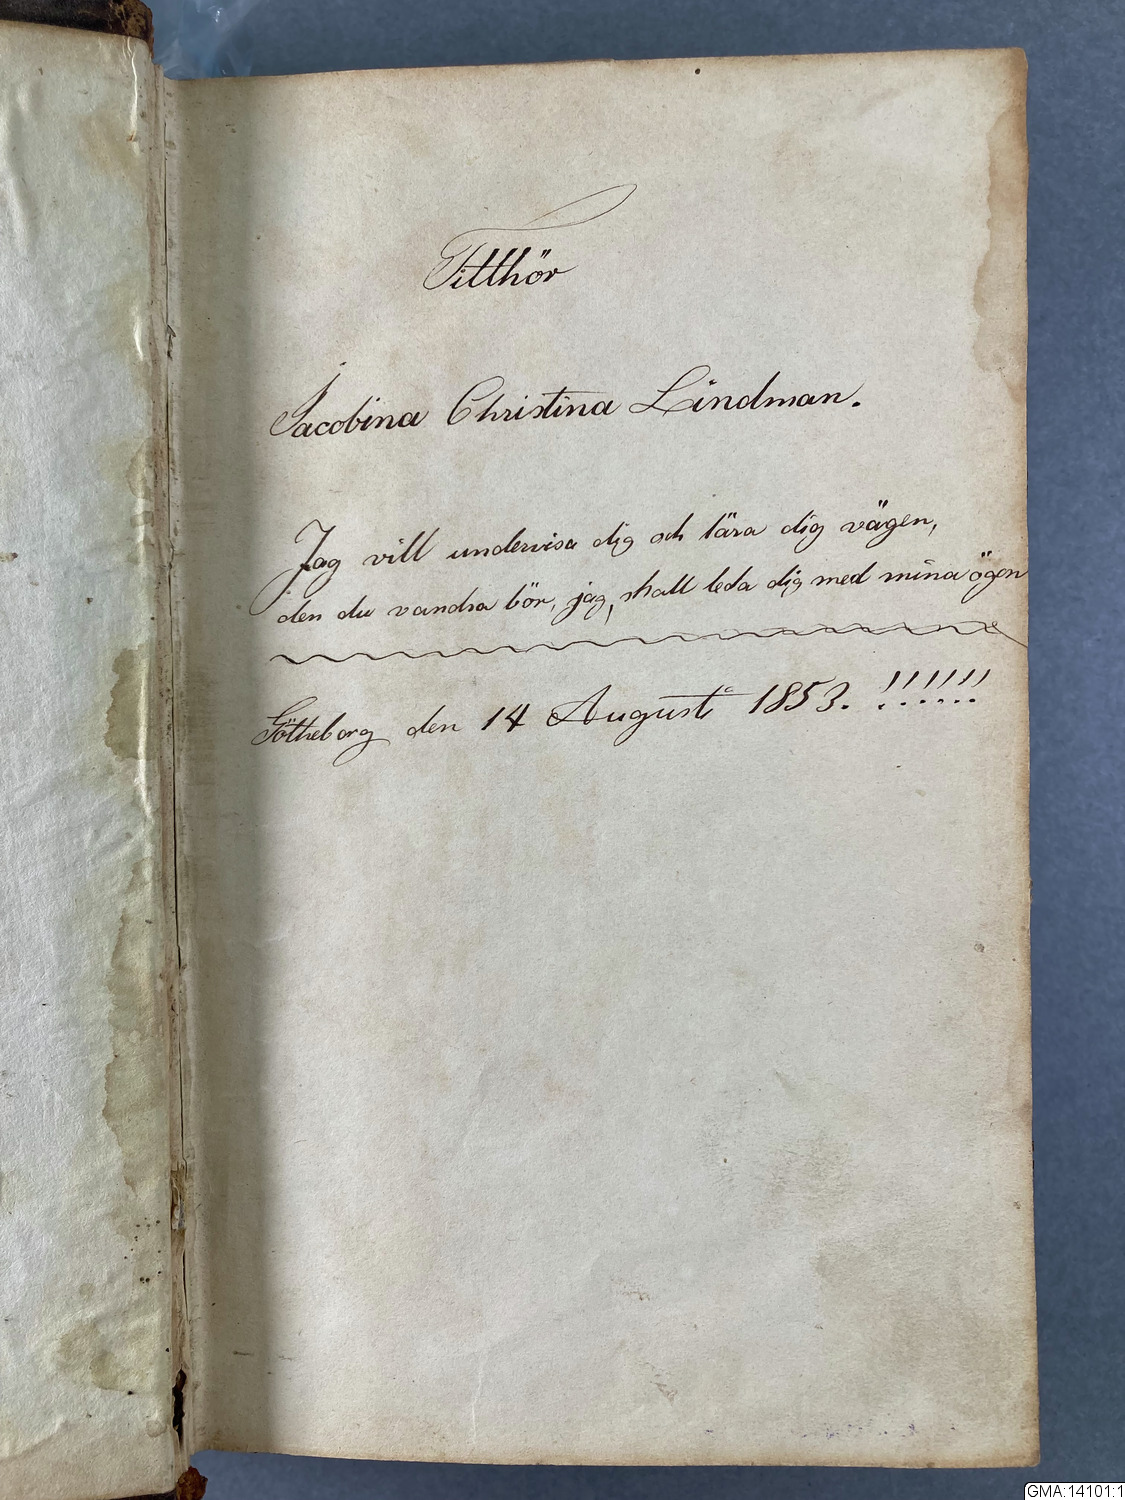 Titthör
Jacobina Christina Lindman.
Jag vill undervisa dig och lära dig vägen,
den du vandra bör, jag, skall leda dig med mina ögon
Götheborg den 14 Augusti 1853. !!!!!!
GMA:14101:1